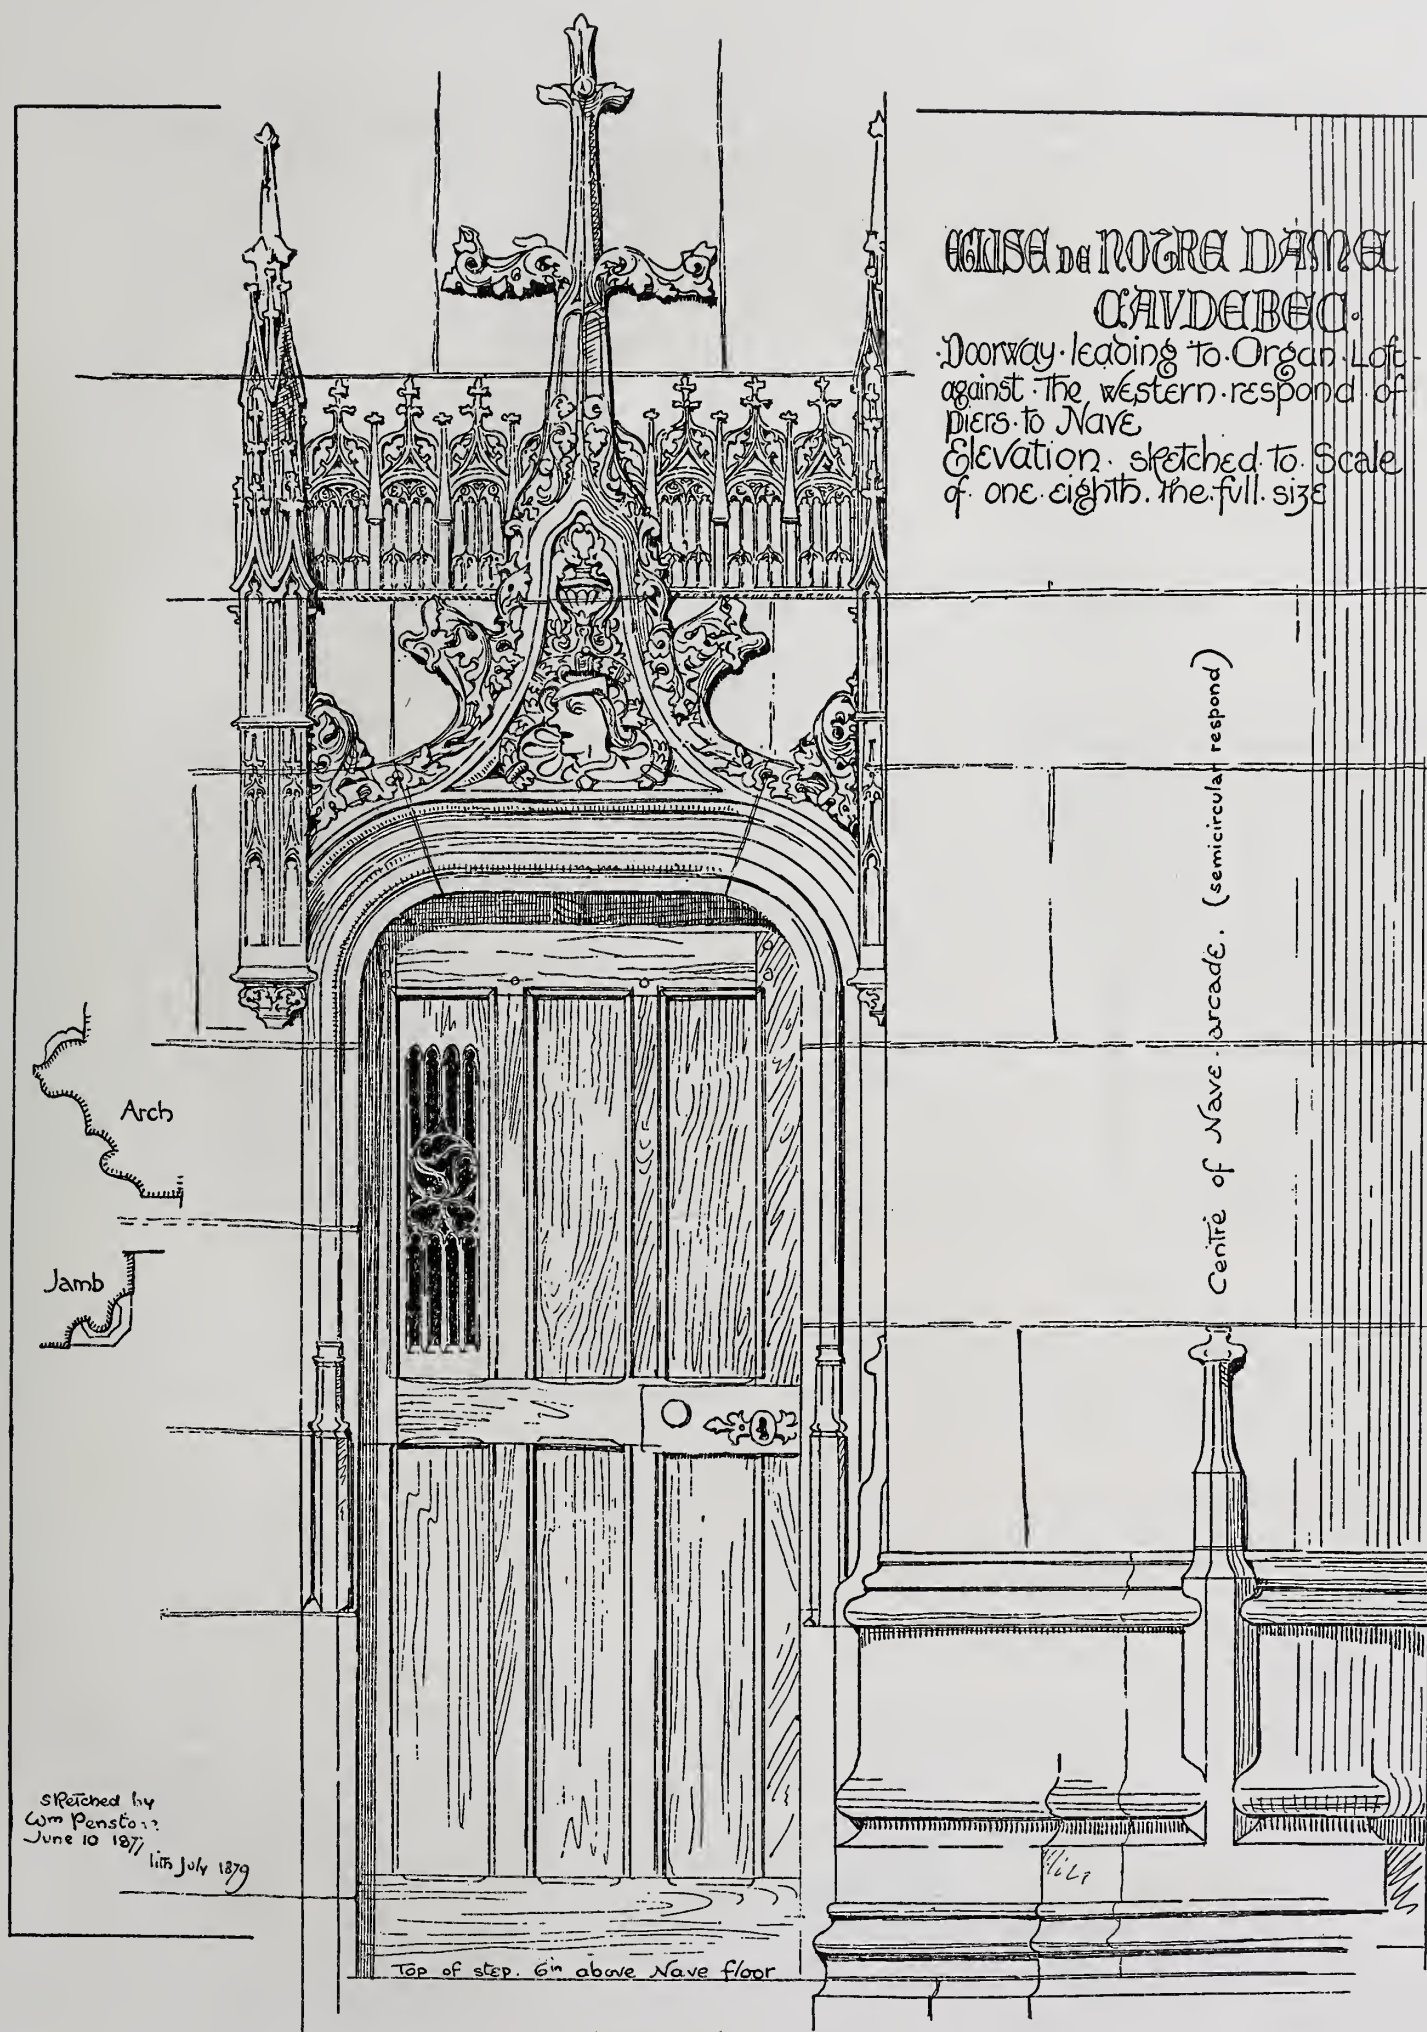 EGLISE DE NOTRE DAME
CAVDEBEC.
·Doorway·leading to·Organ·Loft·
against·the western·respond of
piers·to Nave
Elevation. sketched. to. Scale
of. one. eighth. the. full. size
Centre of Nave·arcade. (semicircular respond)
Arch
Jamb
sketched by
Wm Penstone
June 10 1877
lith July 1879
Top of step. 6in above Nave floor